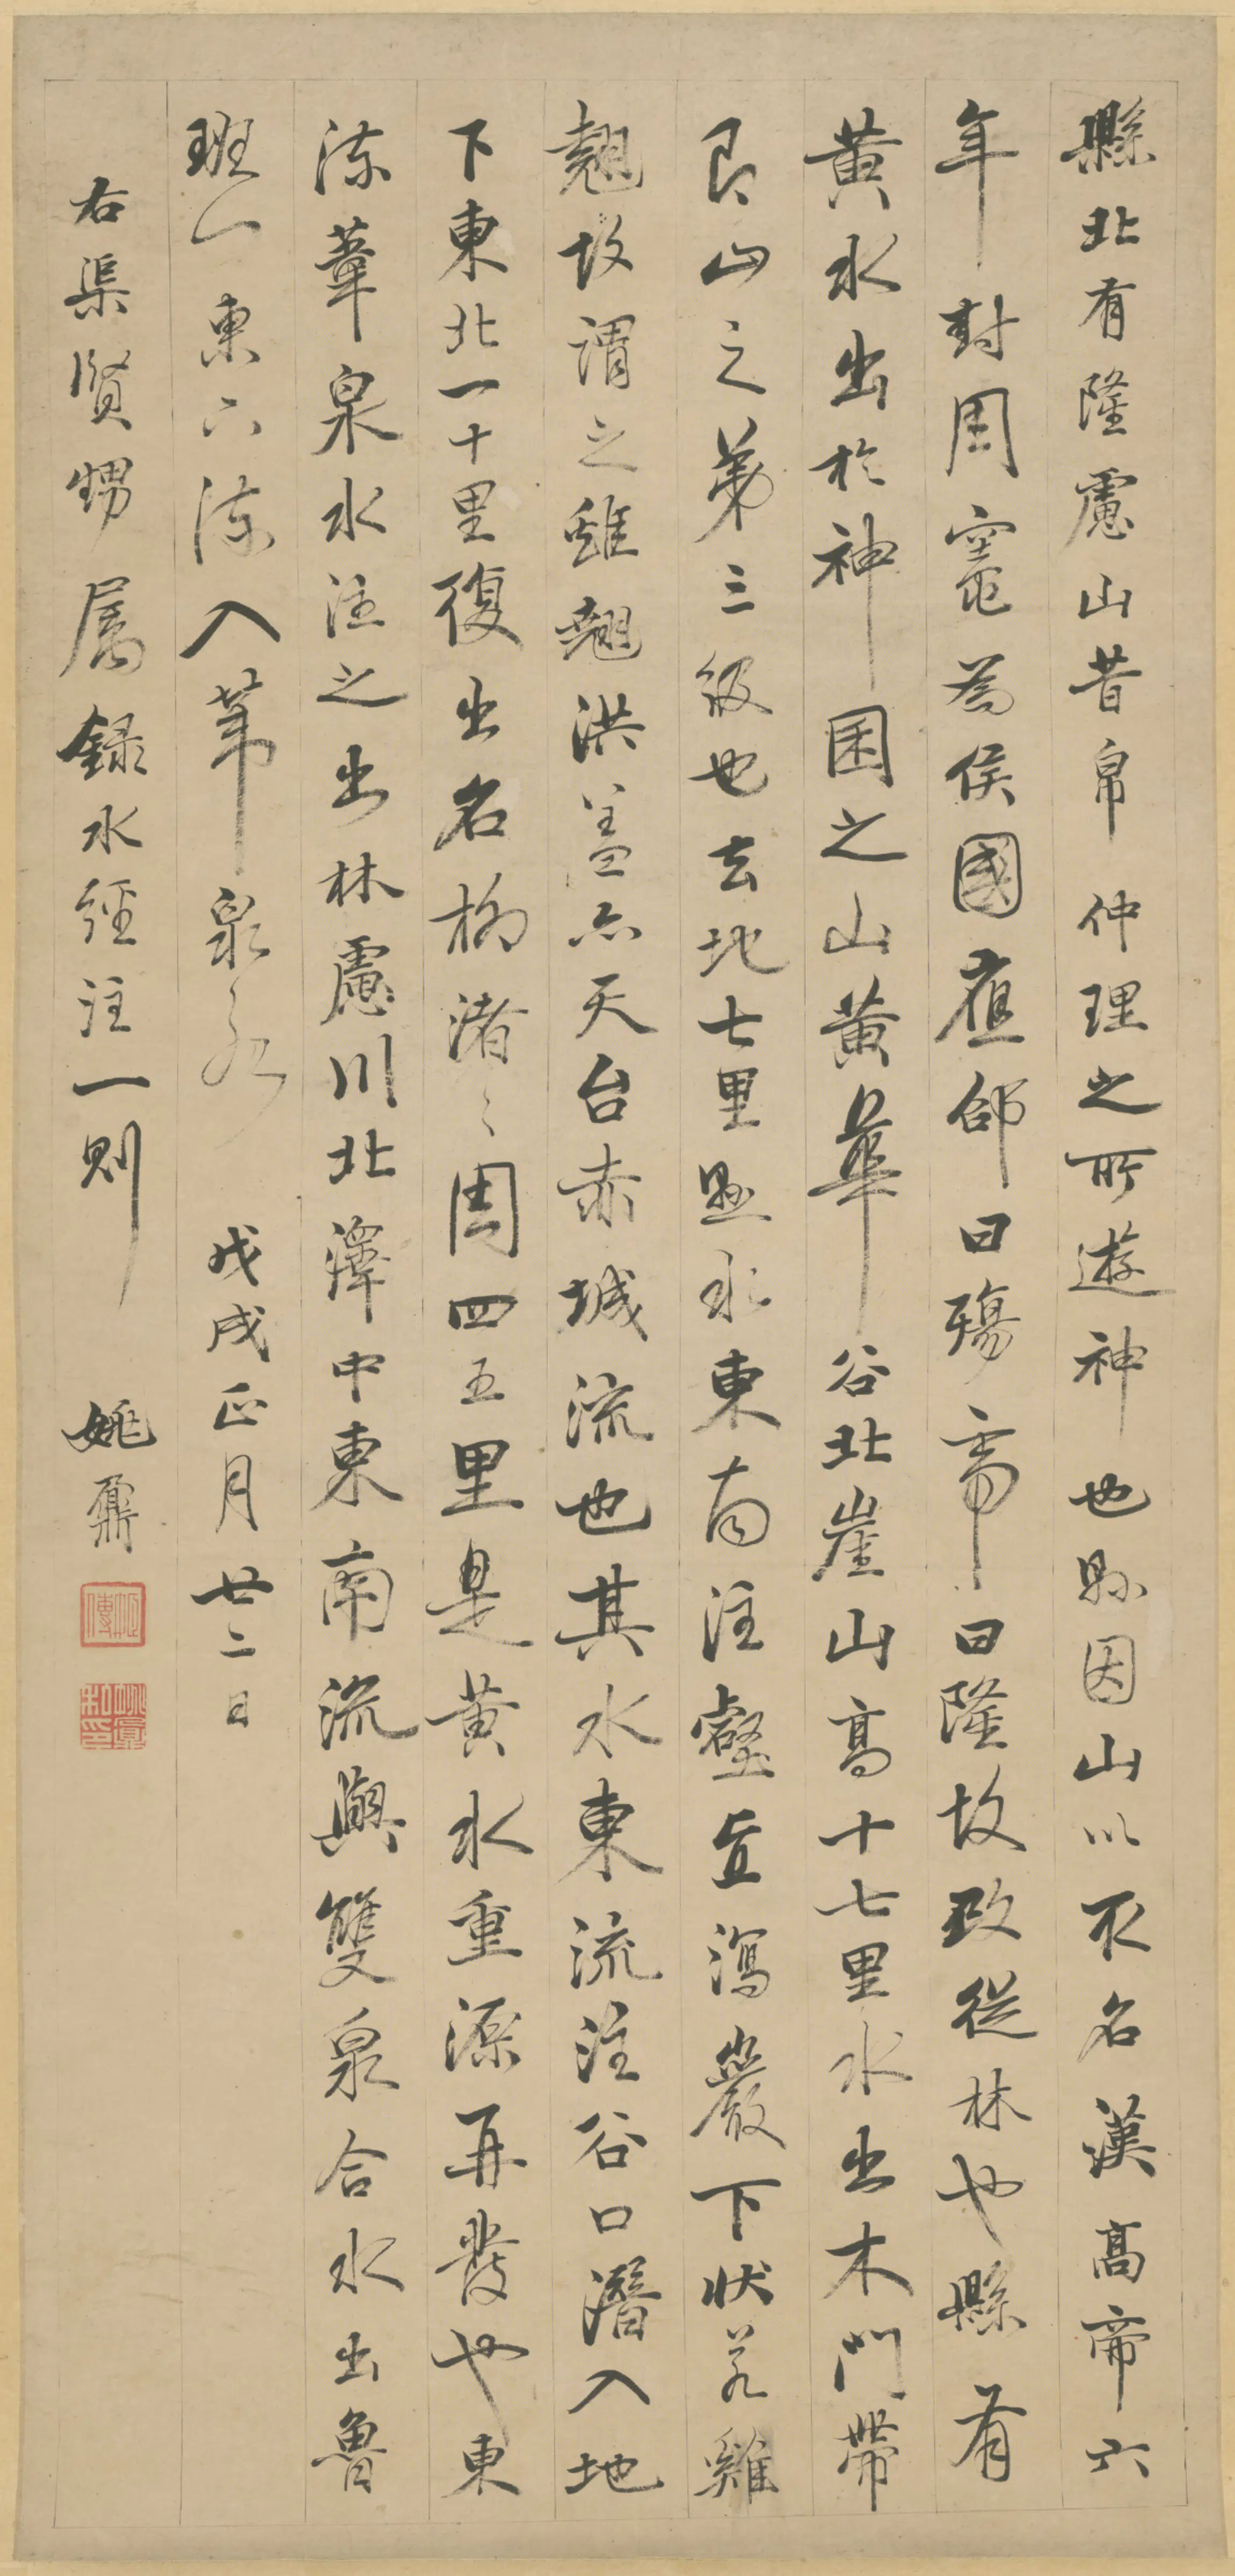 縣北有隆慮山昔帛仲理之所遊神也縣因山以取名漢高帝六
年封周竈為侯國應邵曰殤帝曰隆故改從林也縣有
黃水出於神囷之山黃華谷北崖山高十七里水出木門帶
即山之第三級也去地七里懸水東南注壑直瀉巖下狀若雞
翹故謂之雞翹洪蓋亦天台赤城流也其水東流注谷口潛入地
下東北一十里復出名柳渚〻周四五里是黃水重源再發也東
流葦泉水注之出林慮川北澤中東南流與雙泉合水出魯
班一東亦流入葦泉水 戊戌正月廿二日
右渠賢甥屬錄水經注一則 姚鼐
姚鼐私印